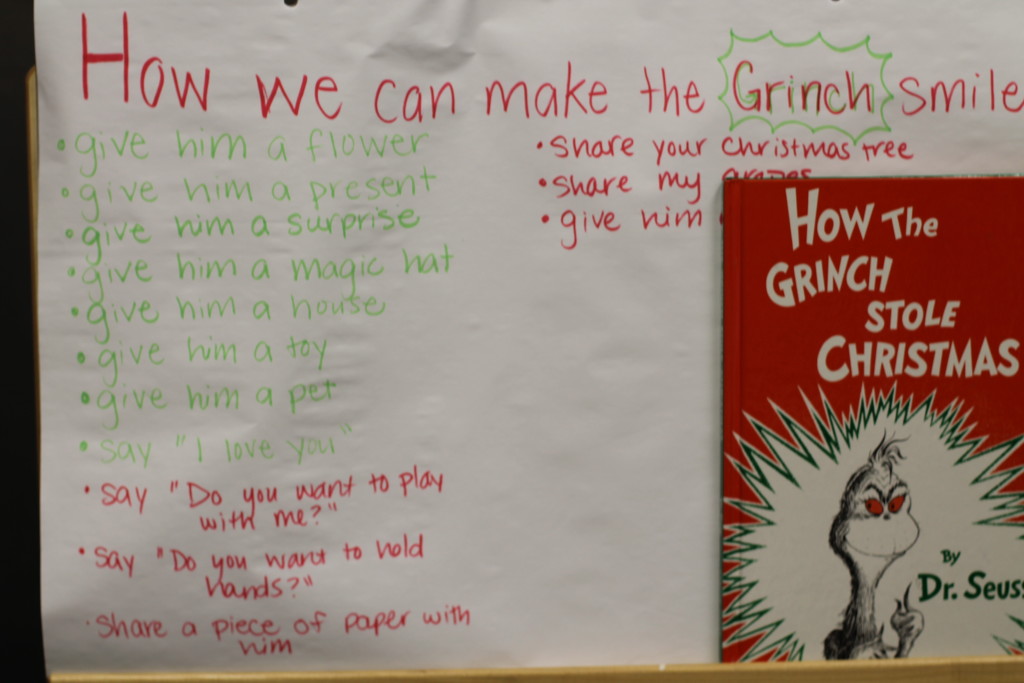 How we can make the Grinch smile
• give him a flower
• give him a present
• give him a surprise
• give him a magic hat
• give him a house
• give him a toy
• give him a pet
• say "I love you"
• say "Do you want to play
with me?"
• say "Do you want to hold
hands?"
• share a piece of paper with
him
• share your christmas tree
• share my
• give him
How The
GRINCH
STOLE
CHRISTMAS
By
Dr. Seuss